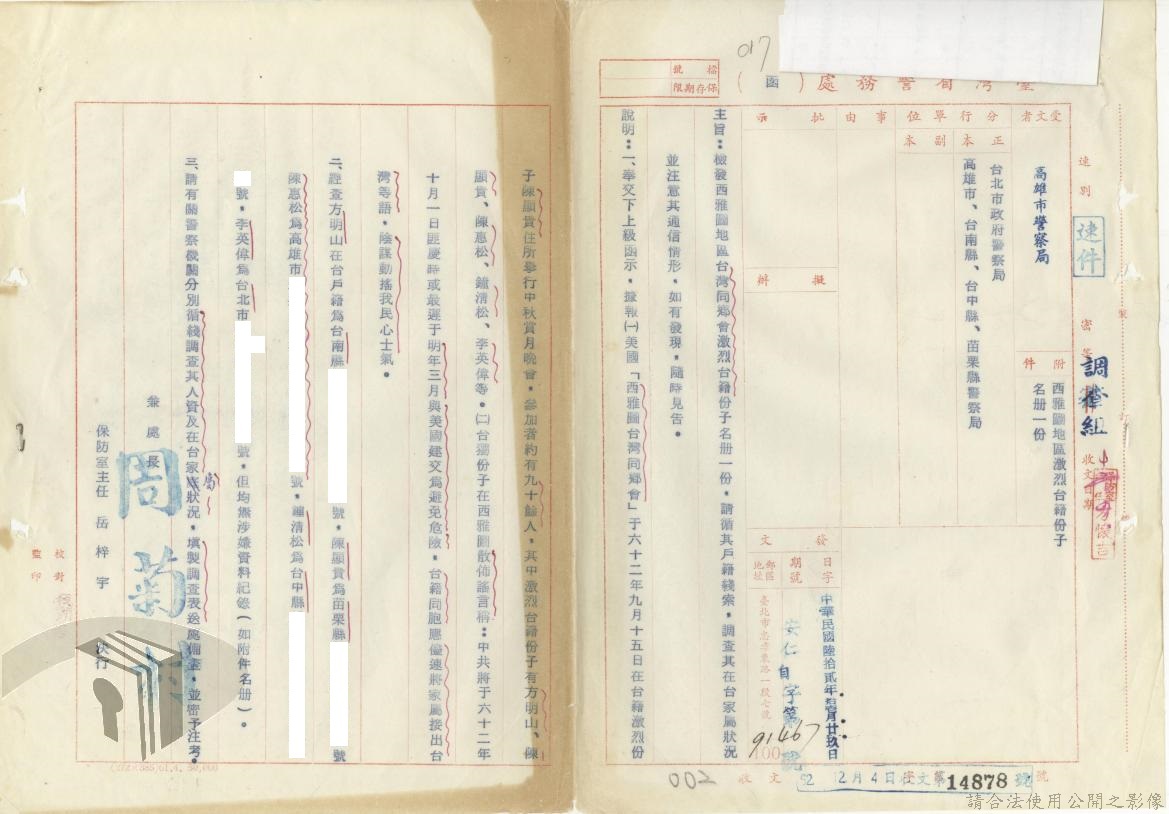 017
檔號
保存期限
臺灣省警務處（函）
速別
速件
密等
調查組
受文者
高雄市警察局
附件
西雅圖地區激烈台籍份子
名册一份
收文日期
行文單位
正本
台北市政府警察局
高雄市、台南縣、台中縣、苗栗縣警察局
副本
事由
批示
擬辦
發文
日期
字號
中華民國陸拾貳年 月廿玖日
安仁自字第91467號
郵區地址
100
臺北市忠孝東路一段七號
主旨：檢發西雅圖地區台灣同鄉會激烈台籍份子名册一份，請循其戶籍綫索，調查其在台家屬狀況
並注意其通信情形，如有發現，隨時見告。
說明：一、奉交下上級函示，據報㈠美國「西雅圖台灣同鄉會」于六十二年九月十五日在台籍激烈份
收文 62 12月4日收文 字第14878號
002
子陳顯貴住所舉行中秋賞月晚會，參加者約有九十餘人，其中激烈台籍份子有方明山、陳
顯貴、陳惠松、鐘清松、李英偉等。㈡台獨份子在西雅圖散佈謠言稱：中共將于六十二年
十月一日匪慶時或最遲于明年三月與美國建交爲避免危險，台籍同胞應儘速將家屬接出台
灣等語，陰謀動搖我民心士氣。
二、經查方明山在台戶籍爲台南縣 號，陳顯貴爲苗栗縣 號
陳惠松爲高雄市 號，鐘清松爲台中縣
號，李英偉爲台北市 號，但均無涉嫌資料紀錄（如附件名册）。
三、請有關警察機關分別循綫調查其人資及在台家屬狀況，填製調查表送處備查，並密予注考。
兼處長 周菊村
保防室主任 岳梓宇 決行
校對
監印
請合法使用公開之影像